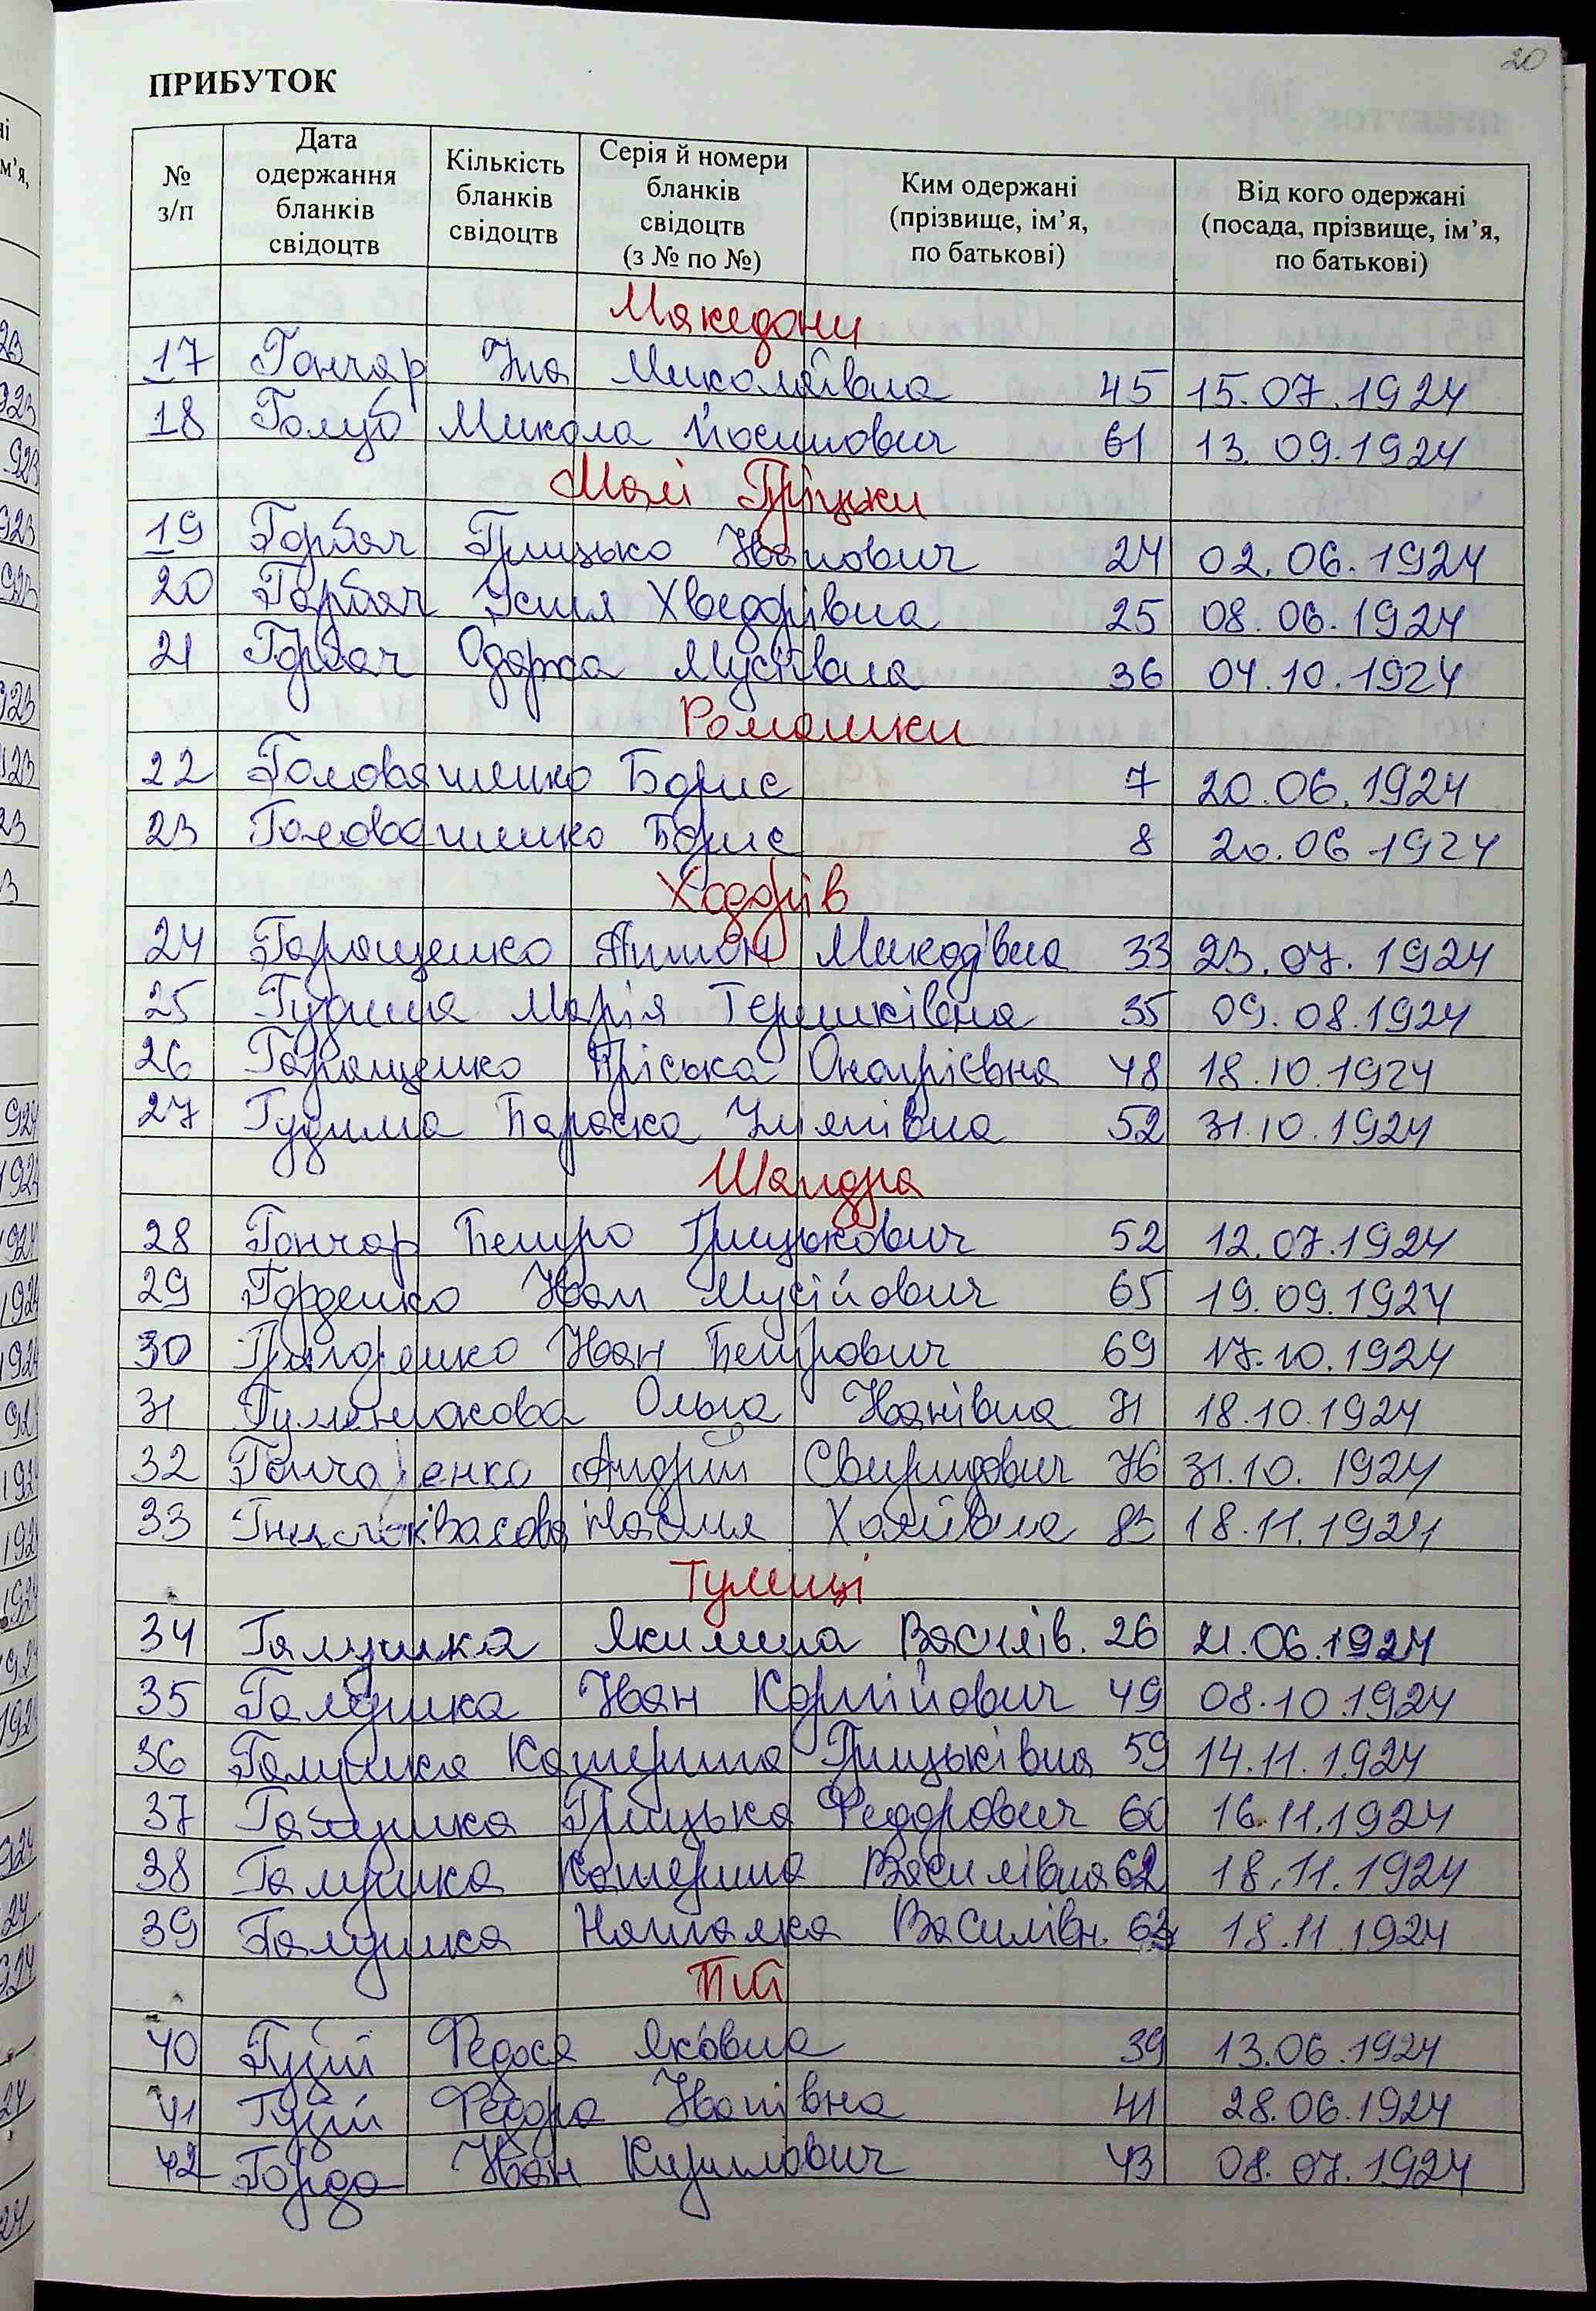 20
ПРИБУТОК
№ з/п | Дата одержання бланків свідоцтв | Кількість бланків свідоцтв | Серія й номери бланків свідоцтв (з № по №) | Ким одержані (прізвище, ім’я, по батькові) | Від кого одержані (посада, прізвище, ім’я, по батькові)
Македони
17 Гончар Їна Миколаївна 45 15.07.1924
18 Голуб Микола Йосипович 61 13.09.1924
Малі Пріцьки
19 Горбач Грицько Іванович 24 02.06.1924
20 Горбач Устя Хведорівна 25 08.06.1924
21 Горбач Одарка Мусіївна 36 04.10.1924
Ромашки
22 Головашенко Борис 7 20.06.1924
23 Головашенко Борис 8 20.06.1924
Ходорів
24 Геращенко 33 23.07.1924
25 Гудима Марія Терешківна 35 09.08.1924
26 Геращенко Пріська Онопріївна 48 18.10.1924
27 Гудима Параска 52 31.10.1924
Шандра
28 Гончар Петро Грицькович 52 12.07.1924
29 Горденко Іван Мусійович 65 19.09.1924
30 Григоренко Іван Петрович 69 17.10.1924
31 Ольга Іванівна 71 18.10.1924
32 Гончаренко Андрій Свиридович 76 31.10.1924
33 Гнилоквасова Настя 83 18.11.1924
Тулинці
34 Галушка Якилина Василів. 26 21.06.1924
35 Галушка Іван Корнійович 49 08.10.1924
36 Галушка Катерина Грицьківна 59 14.11.1924
37 Галушка Грицька Федорович 60 16.11.1924
38 Галушка Катерина Василівна 62 18.11.1924
39 Галушка Наталка Василівн. 63 18.11.1924
Пії
40 Гуцій Федося Яковна 39 13.06.1924
41 Гуцій Федора Іванівна 41 28.06.1924
42 Горда Іван Кирилович 43 08.07.1924